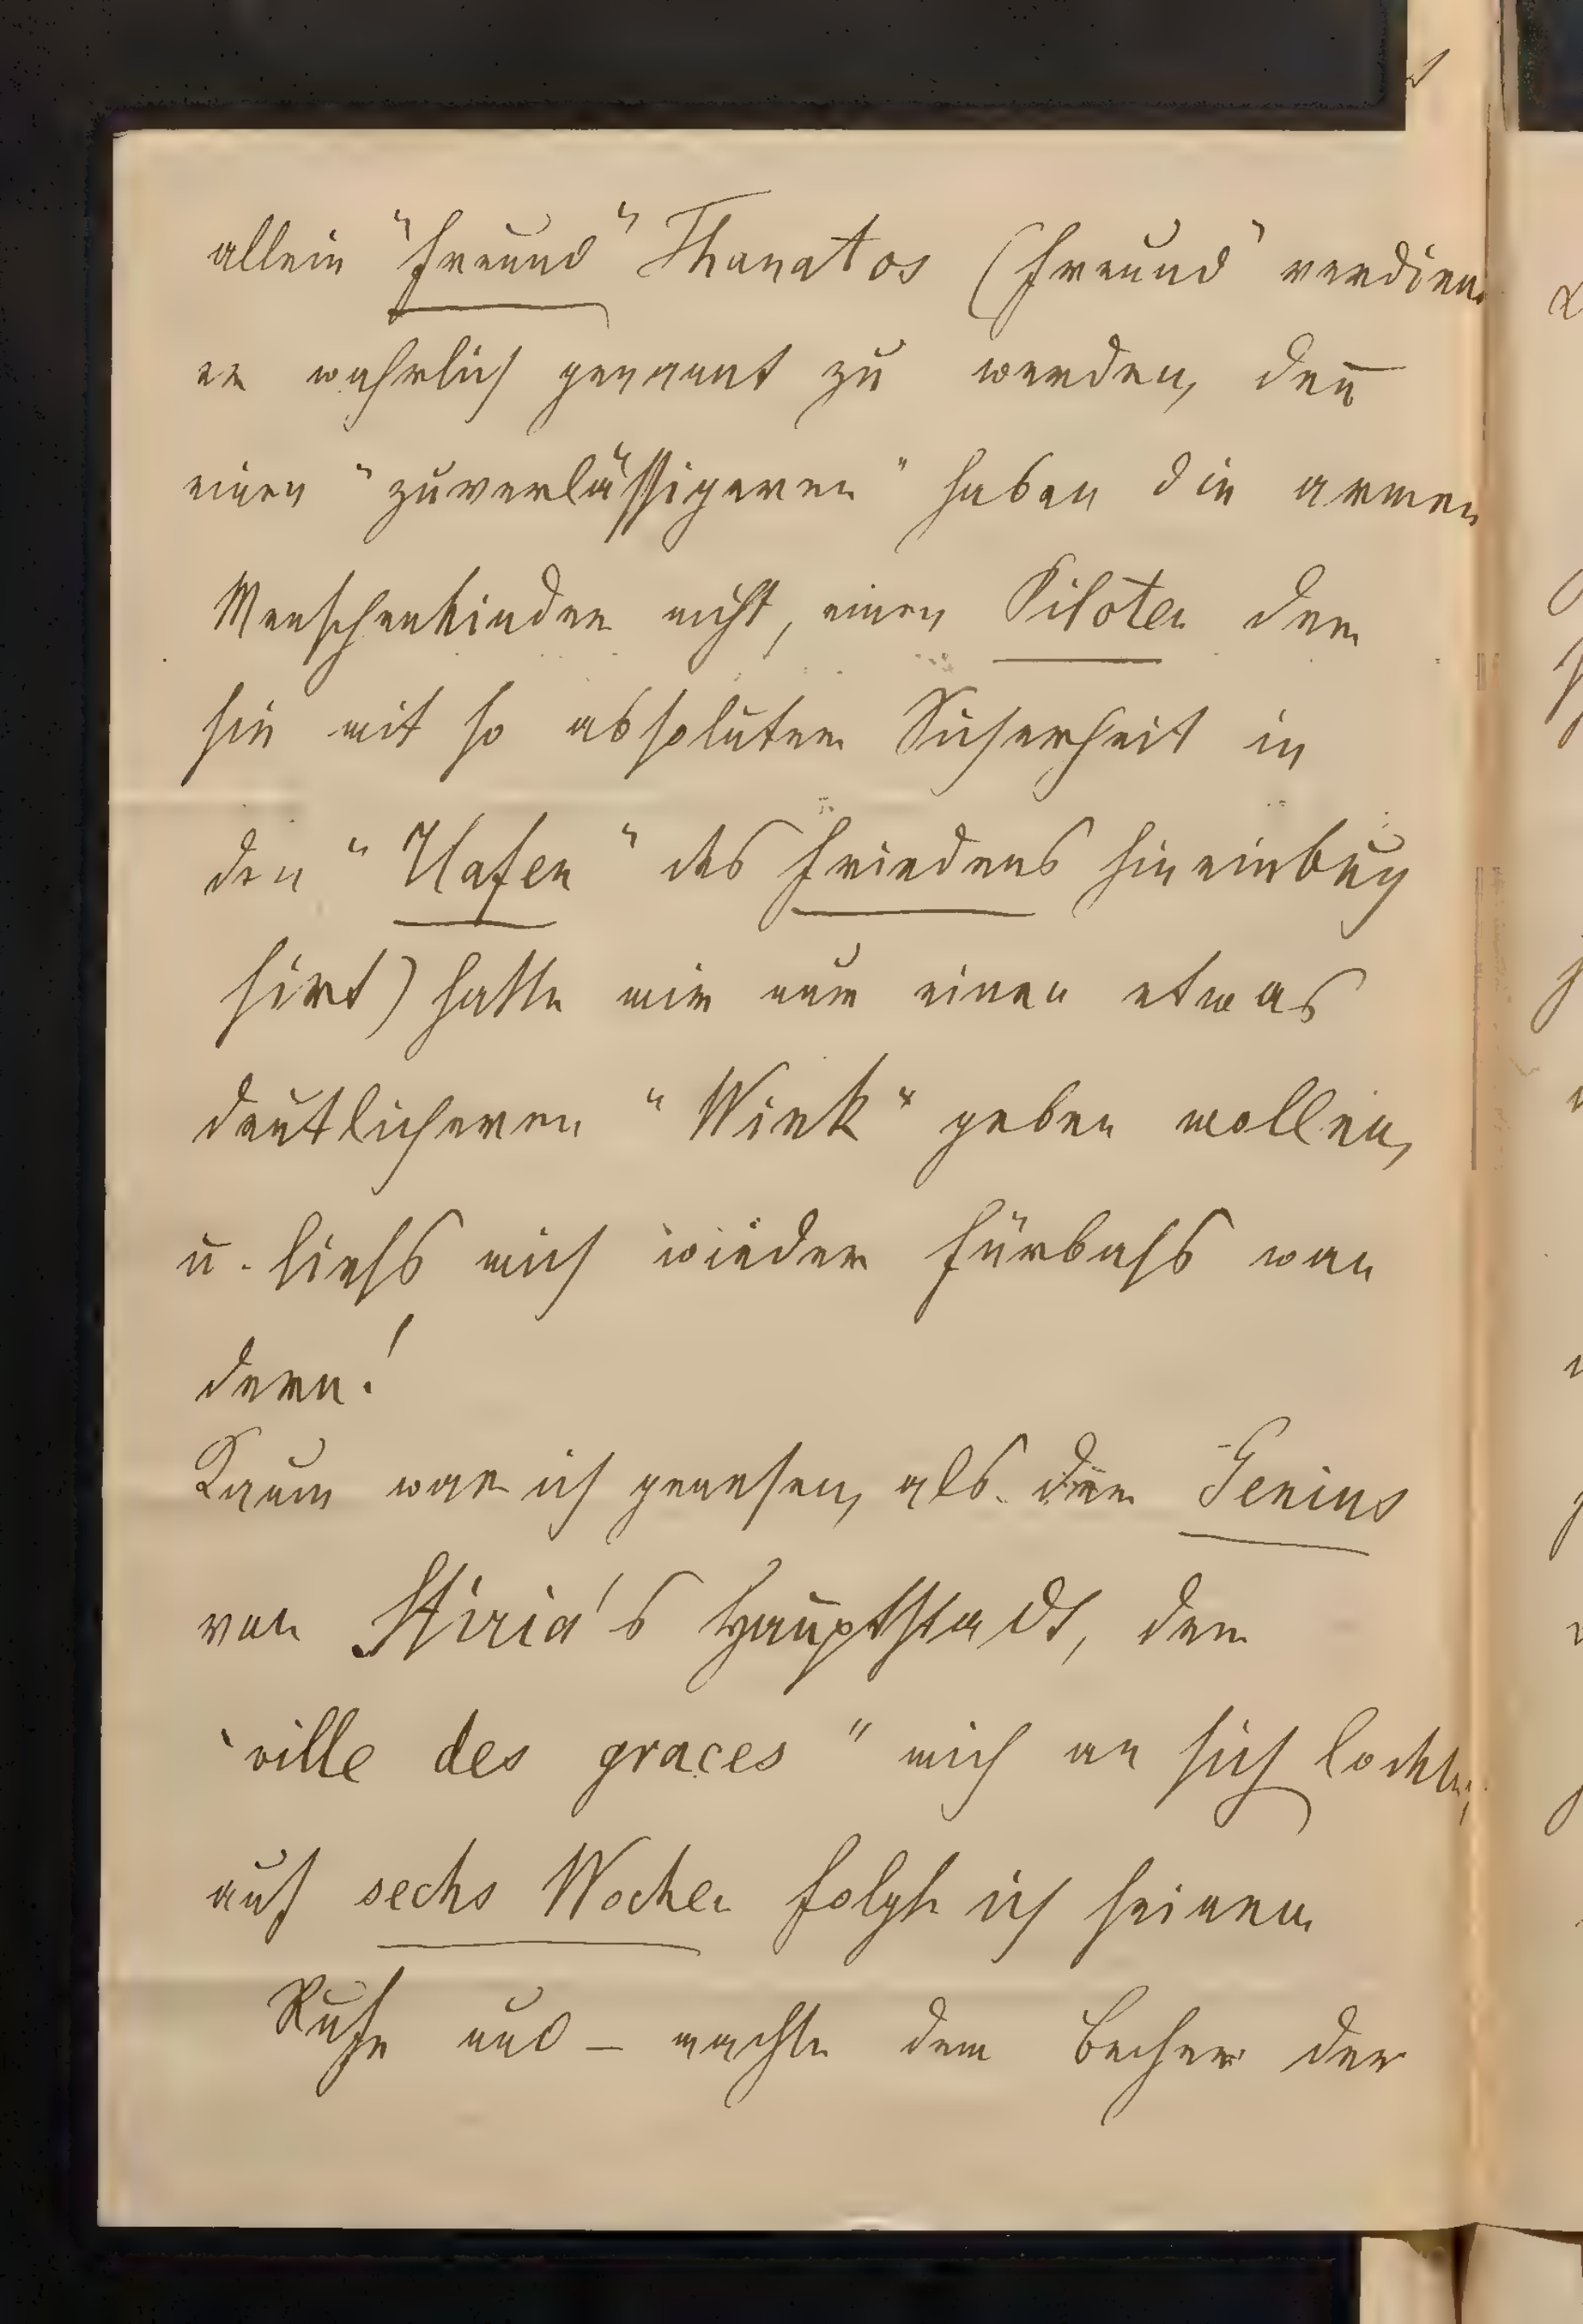 allein "Freund" Thanatos (Freund" verdien
er wahrlich genannt zu werden, den̄
einen "zuverlässigeren" haben die armen
Menschenkinder nicht, einen Piloten der
sie mit so absoluter Sicherheit in
den "Hafen" des Friedens hineinbug
sirt) hatte mir nur einen etwas
deutlicheren "Wink" geben wollen,
u. liess mich wieder fürbass wan
dern!
Kaum war ich genesen, als der Genius
von Stiria's Hauptstadt, der
"ville des graces" mich an sich lockte,
auf sechs Wochen folgte ich seinem
Rufe und – machte dem Becher der